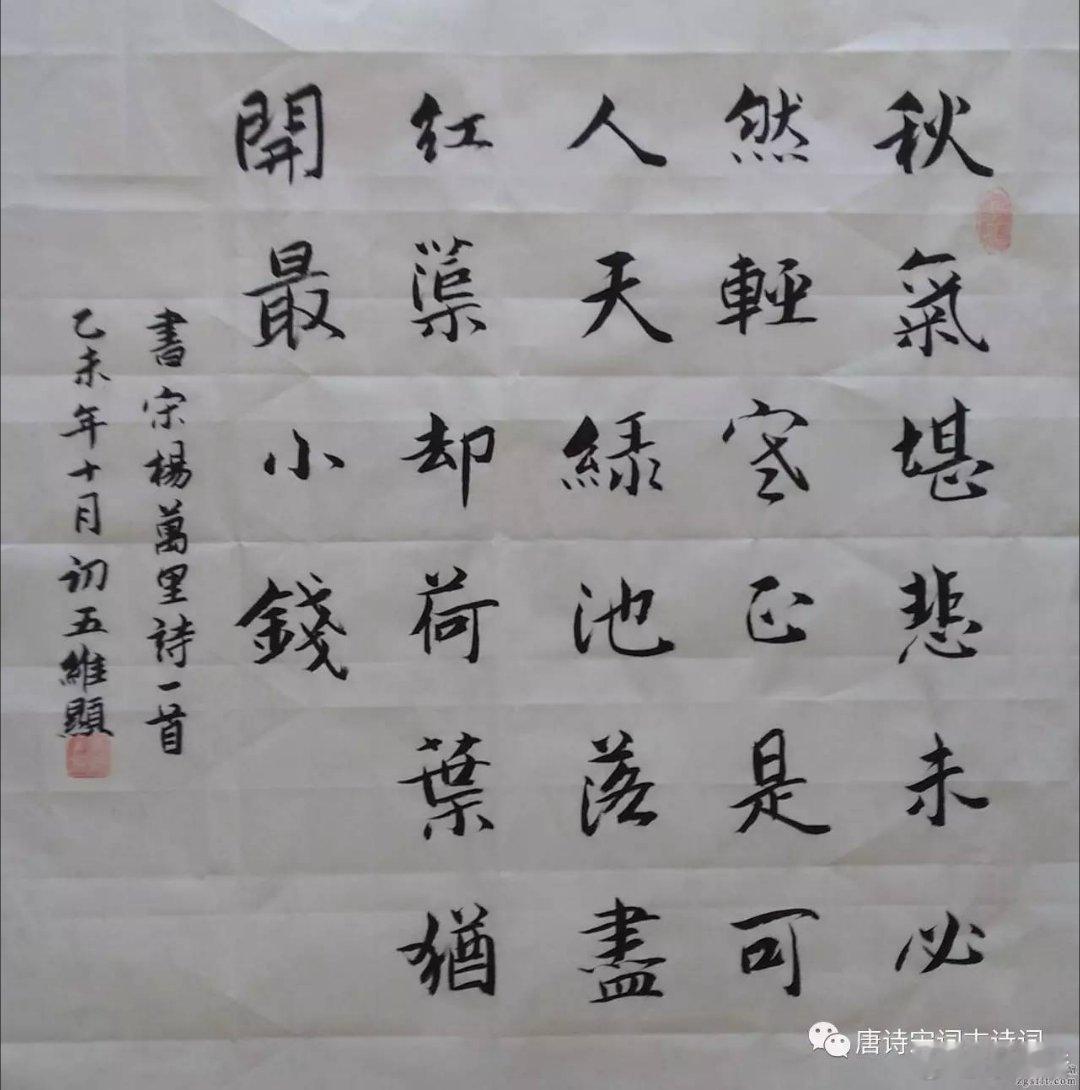 秋氣堪悲未必
然輕寒正是可
人天綠池落盡
红蕖却荷葉猶
開最小錢
書宋楊萬里詩一首
乙未年十月初五維顯
唐诗宋词古诗词